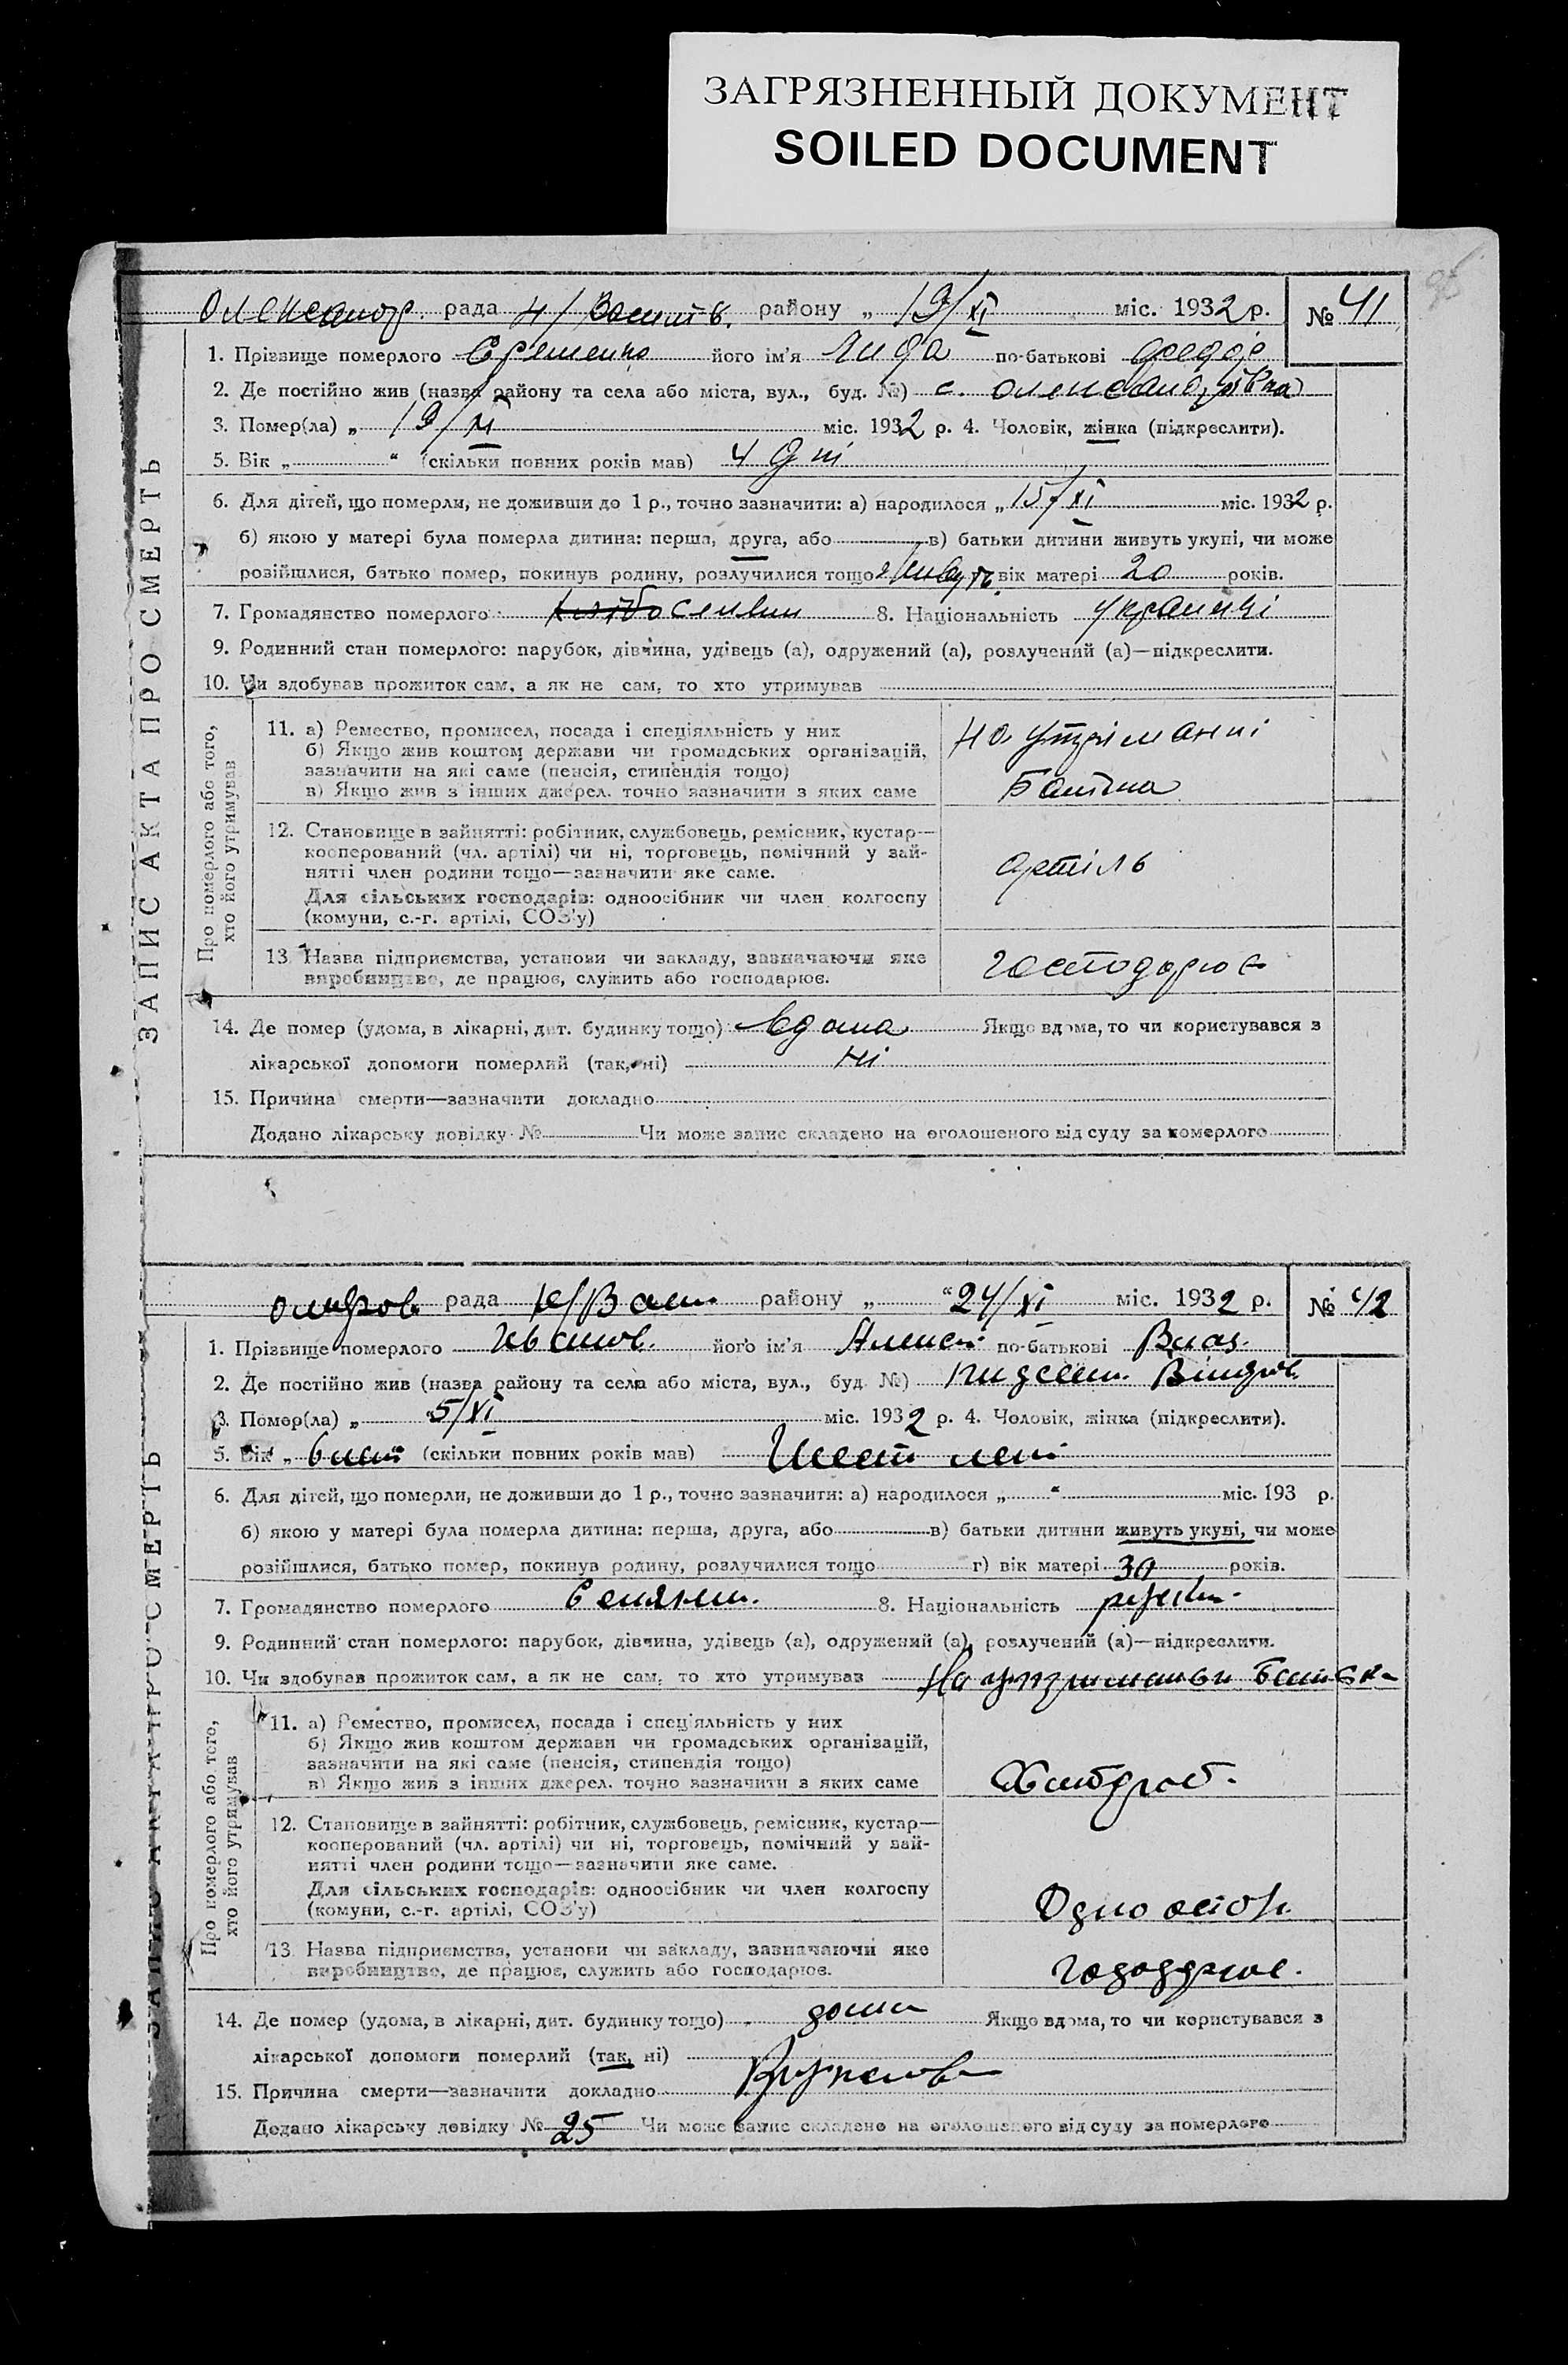 ЗАГРЯЗНЕННЫЙ ДОКУМЕНТ
SOILED DOCUMENT
Олександр. рада Н/Василів. району „ 19/XI міс. 1932 р. № 41
ЗАПИС АКТА ПРО СМЕРТЬ
1. Прізвище померлого Єременко його ім'я Лида по-батькові
2. Де постійно жив (назва району та села або міста, вул., буд. №) с. Олександрівка
3. Помер(ла) „ 19/XI міс. 1932 р. 4. Чоловік, жінка (підкреслити).
5. Вік „ “ (скільки повних років мав) 4 дні
6. Для дітей, що померли, не доживши до 1 р., точно зазначити: а) народилося „ 15/XI міс. 1932 р.
б) якою у матері була померла дитина: перша, друга, або в) батьки дитини живуть укупі, чи може
розійшлися, батько помер, покинув родину, розлучилися тощо живуть вік матері 20 років.
7. Громадянство померлого 8. Національність українці
9. Родинний стан померлого: парубок, дівчина, удівець (а), одружений (а), розлучений (а)—підкреслити.
10. Чи здобував прожиток сам, а як не сам, то хто утримував
Про померлого або того, хто його утримував
11. а) Ремество, промисел, посада і спеціяльність у них
б) Якщо жив коштом держави чи громадських організацій,
зазначити на які саме (пенсія, стипендія тощо)
в) Якщо жив з інших джерел, точно зазначити з яких саме
на утріманні
Батька
12. Становище в зайнятті: робітник, службовець, ремісник, кустар—
кооперований (чл. артілі) чи ні, торговець, помічний у зай-
нятті член родини тощо—зазначити яке саме.
Для сільських господарів: одноосібник чи член колгоспу
(комуни, с.-г. артілі, СОЗ'у)
артіль
13. Назва підприємства, установи чи закладу, зазначаючи яке
виробництво, де працює, служить або господарює.
господарює
14. Де помер (удома, в лікарні, дит. будинку тощо) вдома Якщо вдома, то чи користувався з
лікарської допомоги померлий (так, ні) ні
15. Причина смерти—зазначити докладно
Додано лікарську довідку № Чи може запис складено на оголошеного від суду за померлого
рада Н/Вас. району „ “24/XI міс. 1932 р. № 42
ЗАПИС АКТА ПРО СМЕРТЬ
1. Прізвище померлого Іванов. його ім'я Алексей по-батькові Влас.
2. Де постійно жив (назва району та села або міста, вул., буд. №)
3. Помер(ла) „ “5/XI міс. 1932 р. 4. Чоловік, жінка (підкреслити).
5. Вік „ 6 лет (скільки повних років мав) Шест лет
6. Для дітей, що померли, не доживши до 1 р., точно зазначити: а) народилося „ “ міс. 193 р.
б) якою у матері була померла дитина: перша, друга, або в) батьки дитини живуть укупі, чи може
розійшлися, батько помер, покинув родину, розлучилися тощо г) вік матері 30 років.
7. Громадянство померлого Селянин. 8. Національність
9. Родинний стан померлого: парубок, дівчина, удівець (а), одружений (а), розлучений (а)—підкреслити.
10. Чи здобував прожиток сам, а як не сам, то хто утримував На утриманьи батька
Про померлого або того, хто його утримував
11. а) Ремество, промисел, посада і спеціяльність у них
б) Якщо жив коштом держави чи громадських організацій,
зазначити на які саме (пенсія, стипендія тощо)
в) Якщо жив з інших джерел, точно зазначити з яких саме
12. Становище в зайнятті: робітник, службовець, ремісник, кустар—
кооперований (чл. артілі) чи ні, торговець, помічний у зай-
нятті член родини тощо—зазначити яке саме.
Для сільських господарів: одноосібник чи член колгоспу
(комуни, с.-г. артілі, СОЗ'у)
Одноосібн.
13. Назва підприємства, установи чи закладу, зазначаючи яке
виробництво, де працює, служить або господарює.
14. Де помер (удома, в лікарні, дит. будинку тощо) дома Якщо вдома, то чи користувався з
лікарської допомоги померлий (так, ні)
15. Причина смерти—зазначити докладно
Додано лікарську довідку № 25 Чи може запис складено на оголошеного від суду за померлого